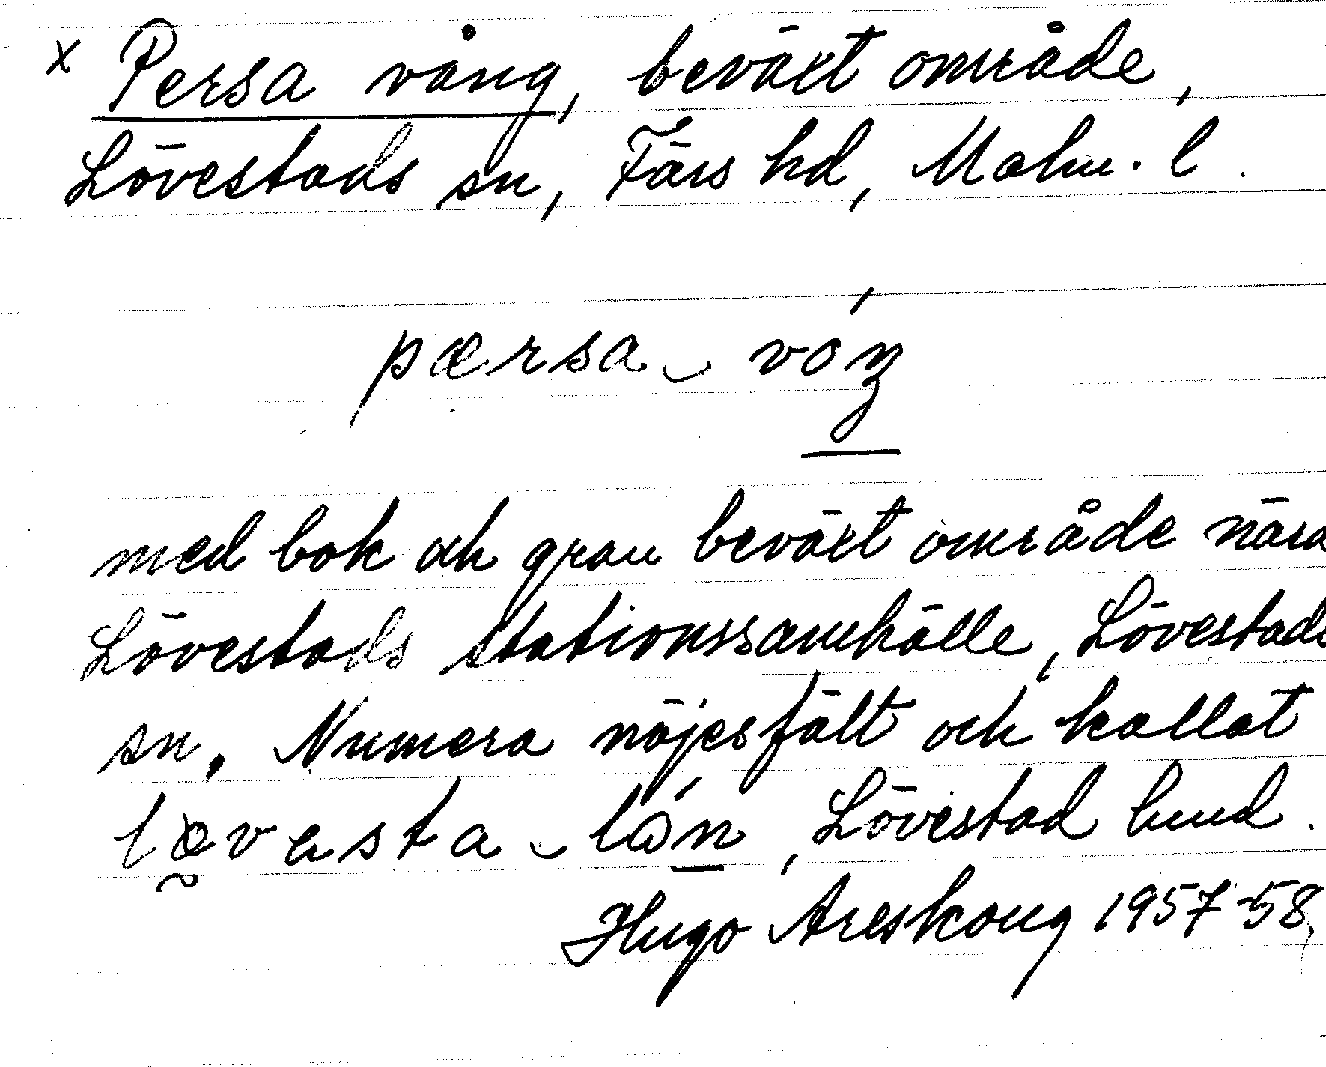 x Persa vång, beväxt område,
Lövestads sn, Färs hd, Malm. l.
pærsa‿vóŋ
med bok och gran beväxt område nära
Lövestads stationssamhälle, Lövestads
sn. Numera nöjesfält och kallat
løvasta‿lón, Lövestad lund.
Hugo Areskoug 1957-58